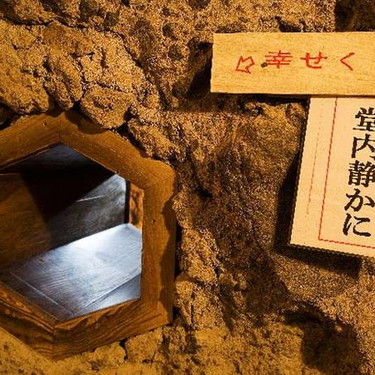 幸せく
堂内静かに